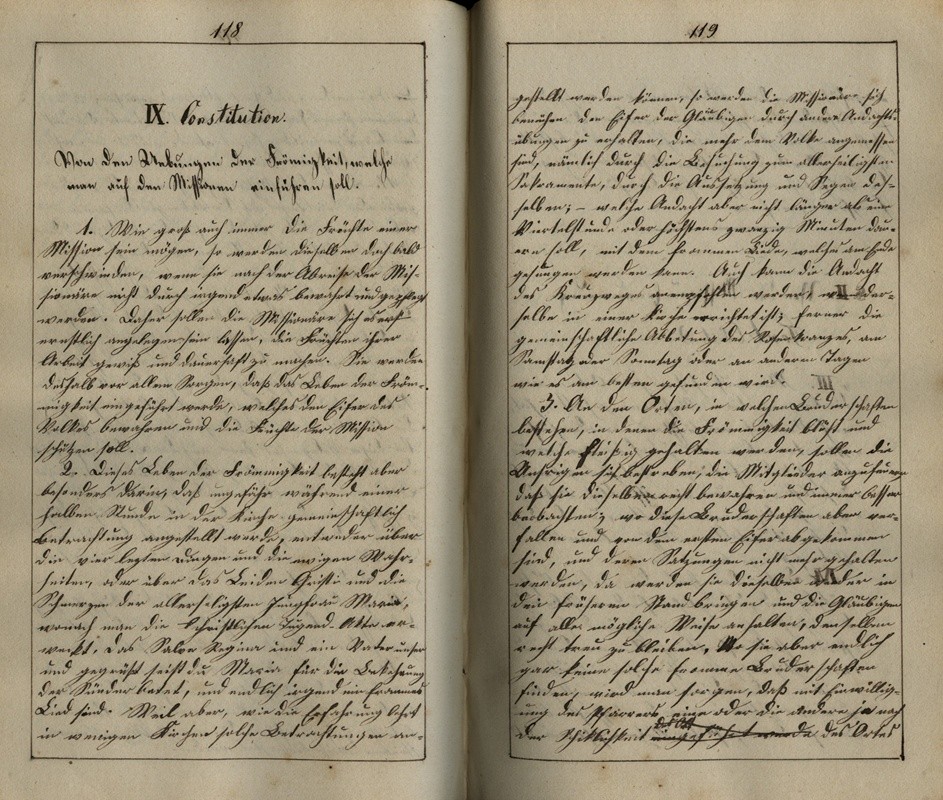 118
IX. Constitution.
Von den Uebungen der Frömigkeit, welche
man auf den Missionen einführen soll.
1. Wie groß auch immer die Früchte einer
Mission sein mögen, so werden dieselben doch bald
verschwinden, wenn sie nach der Abreise der Mis-
sionäre nicht durch irgend etwas bewahrt und gepflegt
werden. Daher sollen die Missionäre sich es erst
ernstlich angelegen sein lassen, die Früchten ihrer
Arbeit gewiß und dauerhaft zu machen. Sie werden
deshalb vor allem sorgen, daß das Leben der Fröm-
migkeit eingeführt werde, welches den Eifer des
Volkes bewahren und die Früchte der Mission
schützen soll.
2. Dieses Leben der Frömmigkeit besteht aber
besonders darin, daß ungefähr während einer
halben Stunde in der Kirche gemeinschaftlich
Betrachtung angestellt werde, entweder über
die vier letzten Dingen und die ewigen Wahr-
heiten, oder über das Leiden Christi und die
Schmerzen der allerseligsten Jungfrau Maria,
wonach man die christlichen Tugend-Akte er-
weckt, das Salve Regina und ein Vater unser
und gegrüßt seist du Maria für die Bekehrung
der Sünder betet, und endlich irgend ein frommes
Lied singt. Weil aber, wie die Erfahrung lehrt
in wenigen Kirchen solche Betrachtungen an-
119
gestellt werden können, so werden die Missionäre sich
bemühen den Eifer der Gläubigen durch andere Andachts-
übungen zu erhalten, die mehr dem Volke angemessen
sind, nämlich durch die Besuchung zum allerheiligsten
Sakramente, durch die Aussetzung und Segen des-
selben; – welche Andacht aber nicht länger als eine
Viertelstunde oder höchstens zwanzig Minuten dau-
ern soll, mit dem frommen Liede, welches am Ende
gesungen werden kann. Auch kann die Andacht
des Kreuzweges anempfohlen werden, wo der-
selbe in einer Kirche errichtet ist; ferner die
gemeinschaftliche Abbetung des Rosenkranzes, am
Samstag oder Sonntag oder an anderen Tagen
wie es am besten gefunden wird.
3. An den Orten, in welchen Bruderschaften
bestehen, in denen die Frömmigkeit blüht und
welche fleißig gehalten werden, sollen die
Unsrigen sich bestreben, die Mitglieder anzufeuern
daß sie dieselben recht bewahren und immer besser
beobachten; wo diese Bruderschaften aber ver-
fallen und von dem ersten Eifer abgekommen
sind, und deren Satzungen nicht mehr gehalten
werden, da werden sie dieselben wieder in
den früheren Stand bringen und die Gläubigen
auf alle mögliche Weise anhalten, denselben
recht treu zu bleiben. Wo sie aber endlich
gar keine solche fromme Bruderschaften
finden, wird man sorgen, daß mit Einwillig-
ung des Pfarrers eine oder die andere je nach
der Schicklichkeit eingeführt werde des Ortes